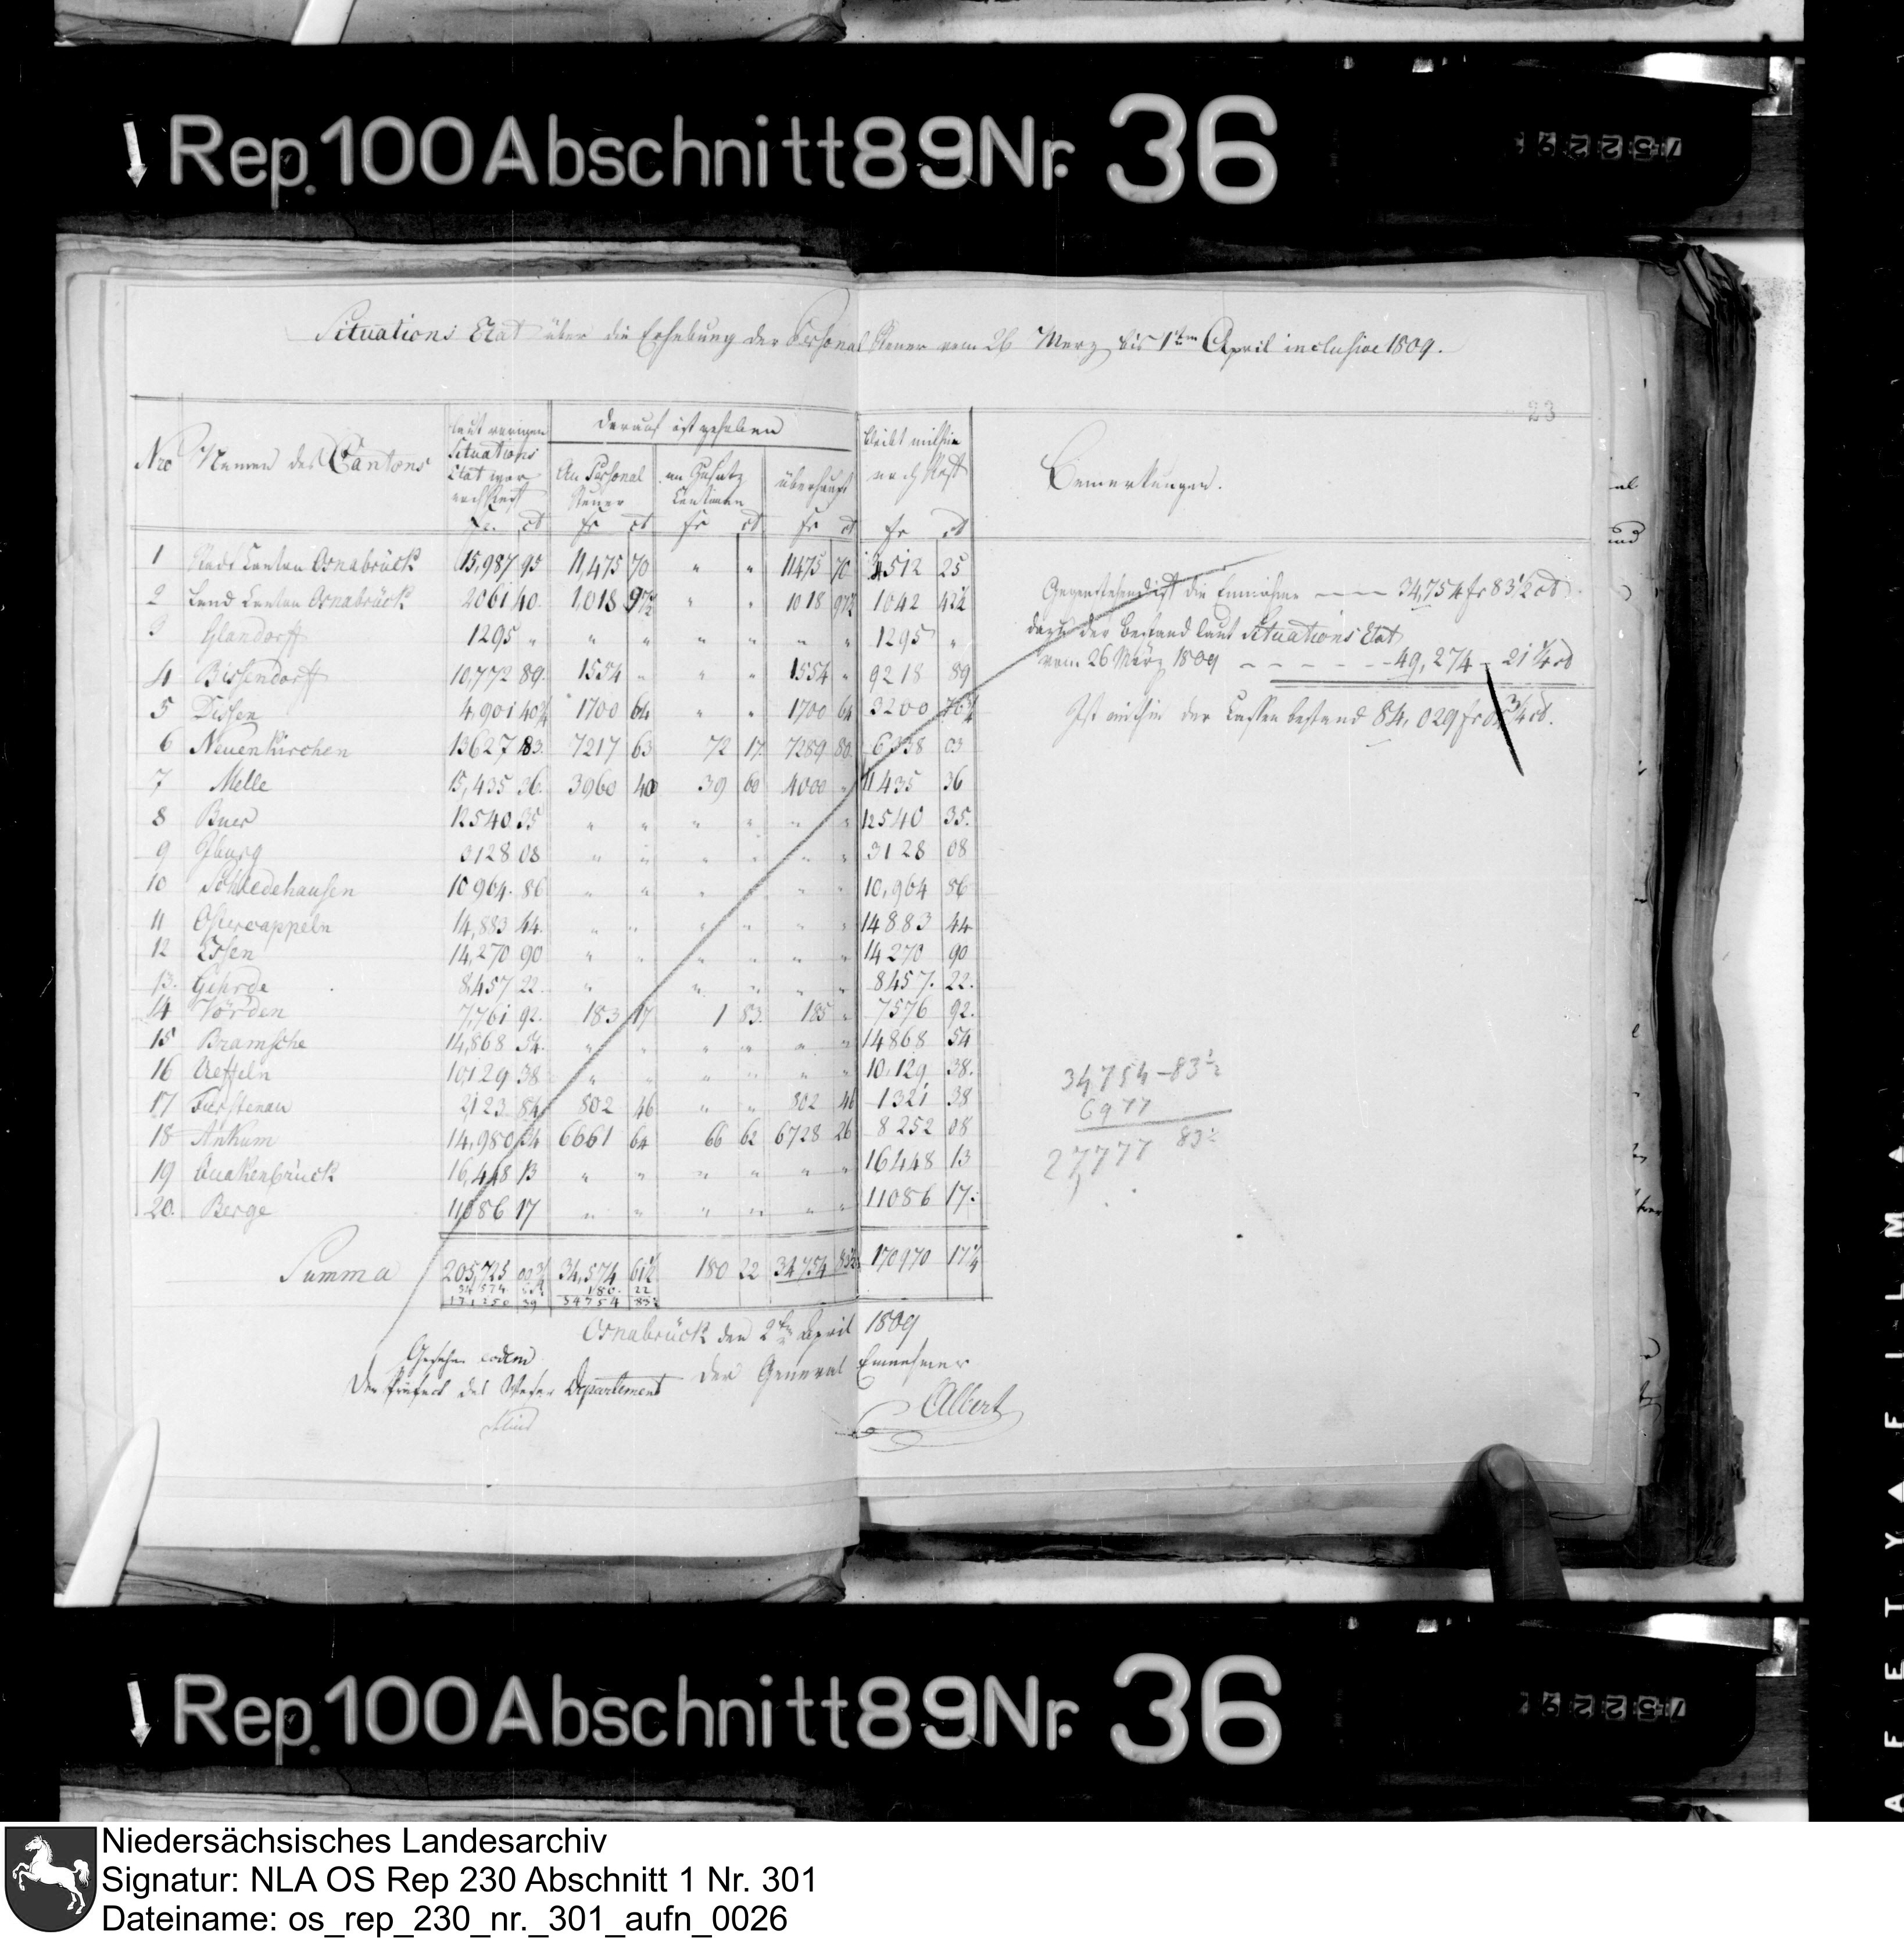 Rep. 100 Abschnitt 89 Nr. 36
Situations Etat über die Erhebung der Personal Steuer vom 26 Merz bis 1ten April inclusive 1809.
23
Nro Namen des Cantons laut vorigen Situations Etat war Darauf ist gehoben bleibt mithin noch Rest Bemerkungen.
An Personal Steuer an Zusatz Centimen überhaupt
fr. ct fr ct fr ct fr ct fr ct
1 Stadt Canton Osnabrück 15,987 95 11,475 70 " " 11475 70 4512 25
2 Land Canton Osnabrück 2061 40. 1,018 97½ " " 1018 97½ 1042 42½
3 Glandorff 1295 " " " " " " " 1295 "
4 Bissendorff 10,772 89. 1554 " " " 1554 " 9218 89
5 Dissen 4,901 40¾ 1700 64 " " 1700 64 3200 76¾
6 Neuenkirchen 13627 83. 7217 63 72 17. 7289 80. 6338 03
7 Melle 15,435 36. 3960 40 39 60 4000 " 11435 36
8 Buer 12540 35 " " " " " " 12540 35.
9 Iburg 3128 08 " " " " " " 3128 08
10 Schledehausen 10964. 86 " " " " " 10,964 86
11 Ostercappeln 14,883 44. " " " " " " 14883 44
12 Essen 14,270 90 " " " " " " 14270 90
13. Gehrde 8457 22. " " " " " 8457. 22.
14 Vörden 7,761 92. 183 17 1 83. 185 " 7576 92.
15 Bramsche 14,868 54. " " " " " " 14868 54
16 Ueffeln 10,129 38 " " " " " " 10,129 38.
17 Fürstenau 2123. 84 802 46 " " 802 46 1321 38
18 Ankum 14,980 34 6661 64 66 62 6728 26 8252 08
19 Quakenbrück 16,448 13 " " " " " " 16448 13
20. Berge 11086 17 " " " " " " 11086 17.
Summa 205,725 00¾ 34,574 61½ 180 22 34754 83½ 170970 17¼
34574 180. 22
171250 39 34754 83½
Gegenstehend ist die Einnahme —— 34,754 fr 83½ ct.
dazu der Bestand laut Situations Etat
vom 26 März 1809 - - - - - - 49,274 - 21¼ ct
Ist mithin der Cassen bestand 84,029 fr ¾ ct.
34754 - 83½
6977
27777 83½
Osnabrück den 2ten April 1809
Der General Einnehmer
Albert
Gesehen eodem
Der Präfect des Weser Departement
Rep. 100 Abschnitt 89 Nr. 36
AFETYAFILMA
Niedersächsisches Landesarchiv
Signatur: NLA OS Rep 230 Abschnitt 1 Nr. 301
Dateiname: os_rep_230_nr._301_aufn_0026